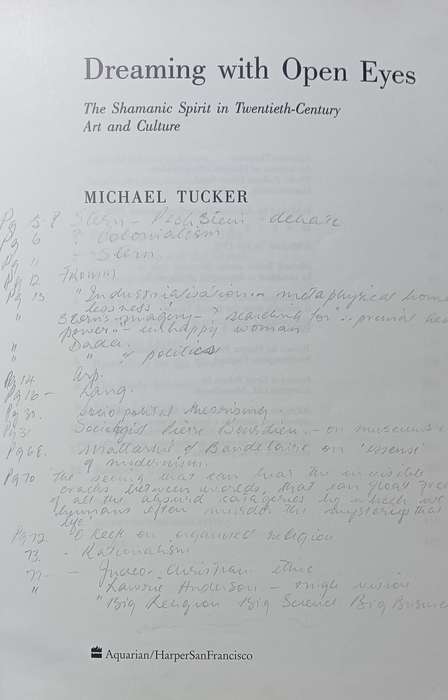 Dreaming with Open Eyes
The Shamanic Spirit in Twentieth-Century
Art and Culture
MICHAEL TUCKER
Pg 5. Stern -
Pg 6 ? Colonialism
Pg 11 - Stern.
Pg 12
Pg 13 "Industrialisation metaphysical home
lessness
" Stern's imagery - searching for
power" - unhappy woman
" Dada.
" " " politics
Pg 14 Arp.
Pg 16 - Lang.
Pg Socio political theorising
Pg 3 Sociologist Pierre Bourdieu - on museums
Pg 68. Mallarmé & Baudelaire on 'essense'
of modernism.
Pg 70 The seeing that can heal the invisible
cracks between worlds, that can float free
of all the absurd categories by which we
humans often murder the mystery that
life"
Pg 72 on organised religion
73. - Rationalism
77 - Judeo-Christian ethic
" Laurie Anderson - single vision
" "Big Religion Big Science Big Business
Aquarian/HarperSanFrancisco